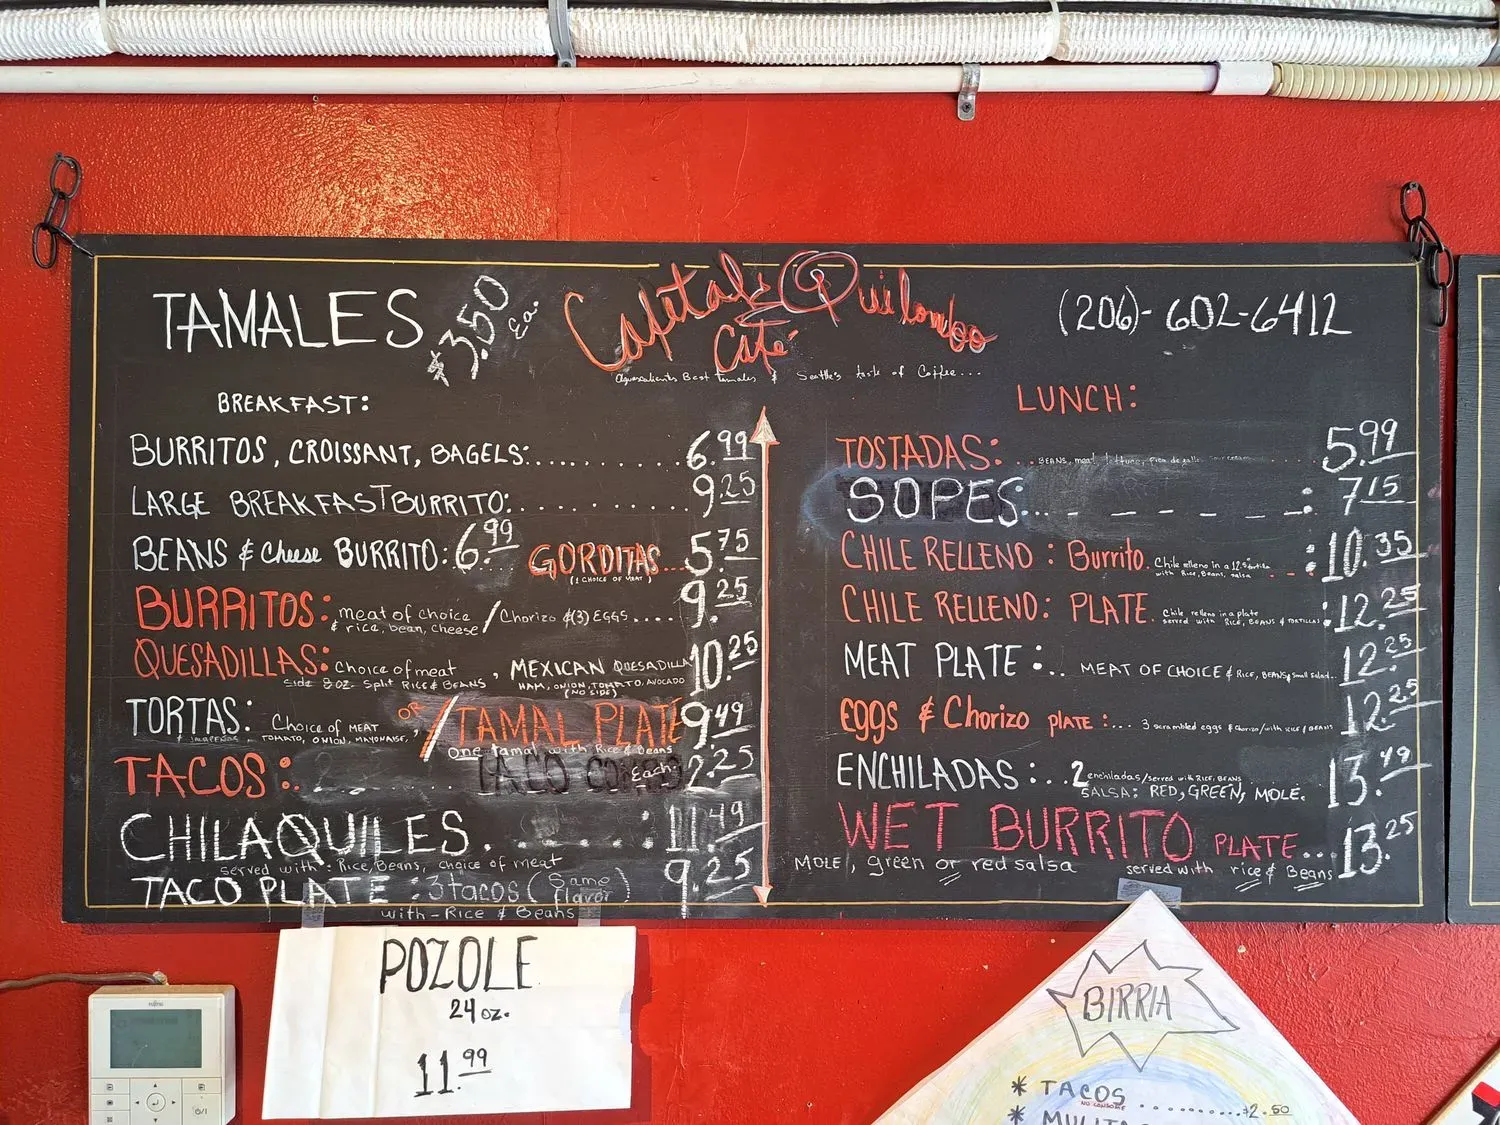 TAMALES $3.50 Ea.
Cafetal Quilombo
Café
(206)-602-6412
Aguascalientes Best Tamales & Seattle's taste of Coffee...
BREAKFAST:
BURRITOS, CROISSANT, BAGELS:............ 6.99
LARGE BREAKFAST BURRITO:............ 9.25
BEANS & Cheese BURRITO: 6.99... GORDITAS... 5.75
(1 CHOICE OF MEAT)
BURRITOS: meat of choice / Chorizo &(3) EGGS.... 9.25
& rice, bean, cheese
QUESADILLAS: Choice of meat, MEXICAN QUESADILLA 10.25
Side 8oz. Split RICE & BEANS HAM, ONION, TOMATO, AVOCADO
(NO SIDE)
TORTAS: Choice of MEAT OR / TAMAL PLATE 9.49
& JALAPEÑOS - TOMATO, ONION, MAYONAISE, One Tamal with Rice & Beans
TACOS:.......... TACO COMBO Each: 2.25
CHILAQUILES......: 11.49
served with: Rice, Beans, choice of meat
TACO PLATE: 3 tacos (Same flavor) 9.25
with - Rice & Beans
LUNCH:
TOSTADAS: ...BEANS, meat, lettuce, pico de gallo, sour cream...... 5.99
SOPES:. _ _ _ _ _: 7.15
CHILE RELLENO: Burrito. Chile relleno in a 12.5 tortilla : 10.35
with Rice, Beans, salsa
CHILE RELLENO: PLATE. Chile relleno in a plate : 12.25
served with RICE, BEANS & TORTILLAS
MEAT PLATE:.. MEAT OF CHOICE & RICE, BEANS & Small salad.. 12.25
EGGS & Chorizo PLATE:... 3 scrambled eggs & chorizo/with RICE & BEANS 12.25
ENCHILADAS:.. 2 enchiladas/served with RICE, BEANS 13.49
SALSA: RED, GREEN, MOLE.
WET BURRITO PLATE... 13.25
MOLE, green or red salsa served with rice & Beans
POZOLE
24 oz.
11.99
BIRRIA
* TACOS ............ $2.50
NO CONSOME
fujitsu